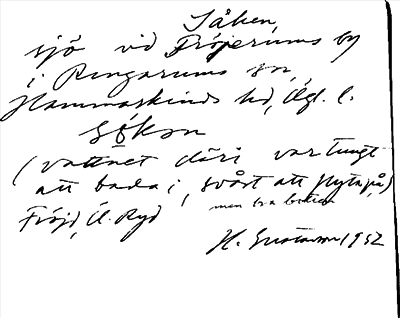 Såken,
sjö vid Fröjerums by
i Ringarums sn,
Hammarkinds hd, Ögl. l.
sǫ̈kən
(vattnet däri var tungt
att bada i, svårt att flyta på,)
men bra botten
Fröjd, Ö. Ryd
H. Gustavson 1932